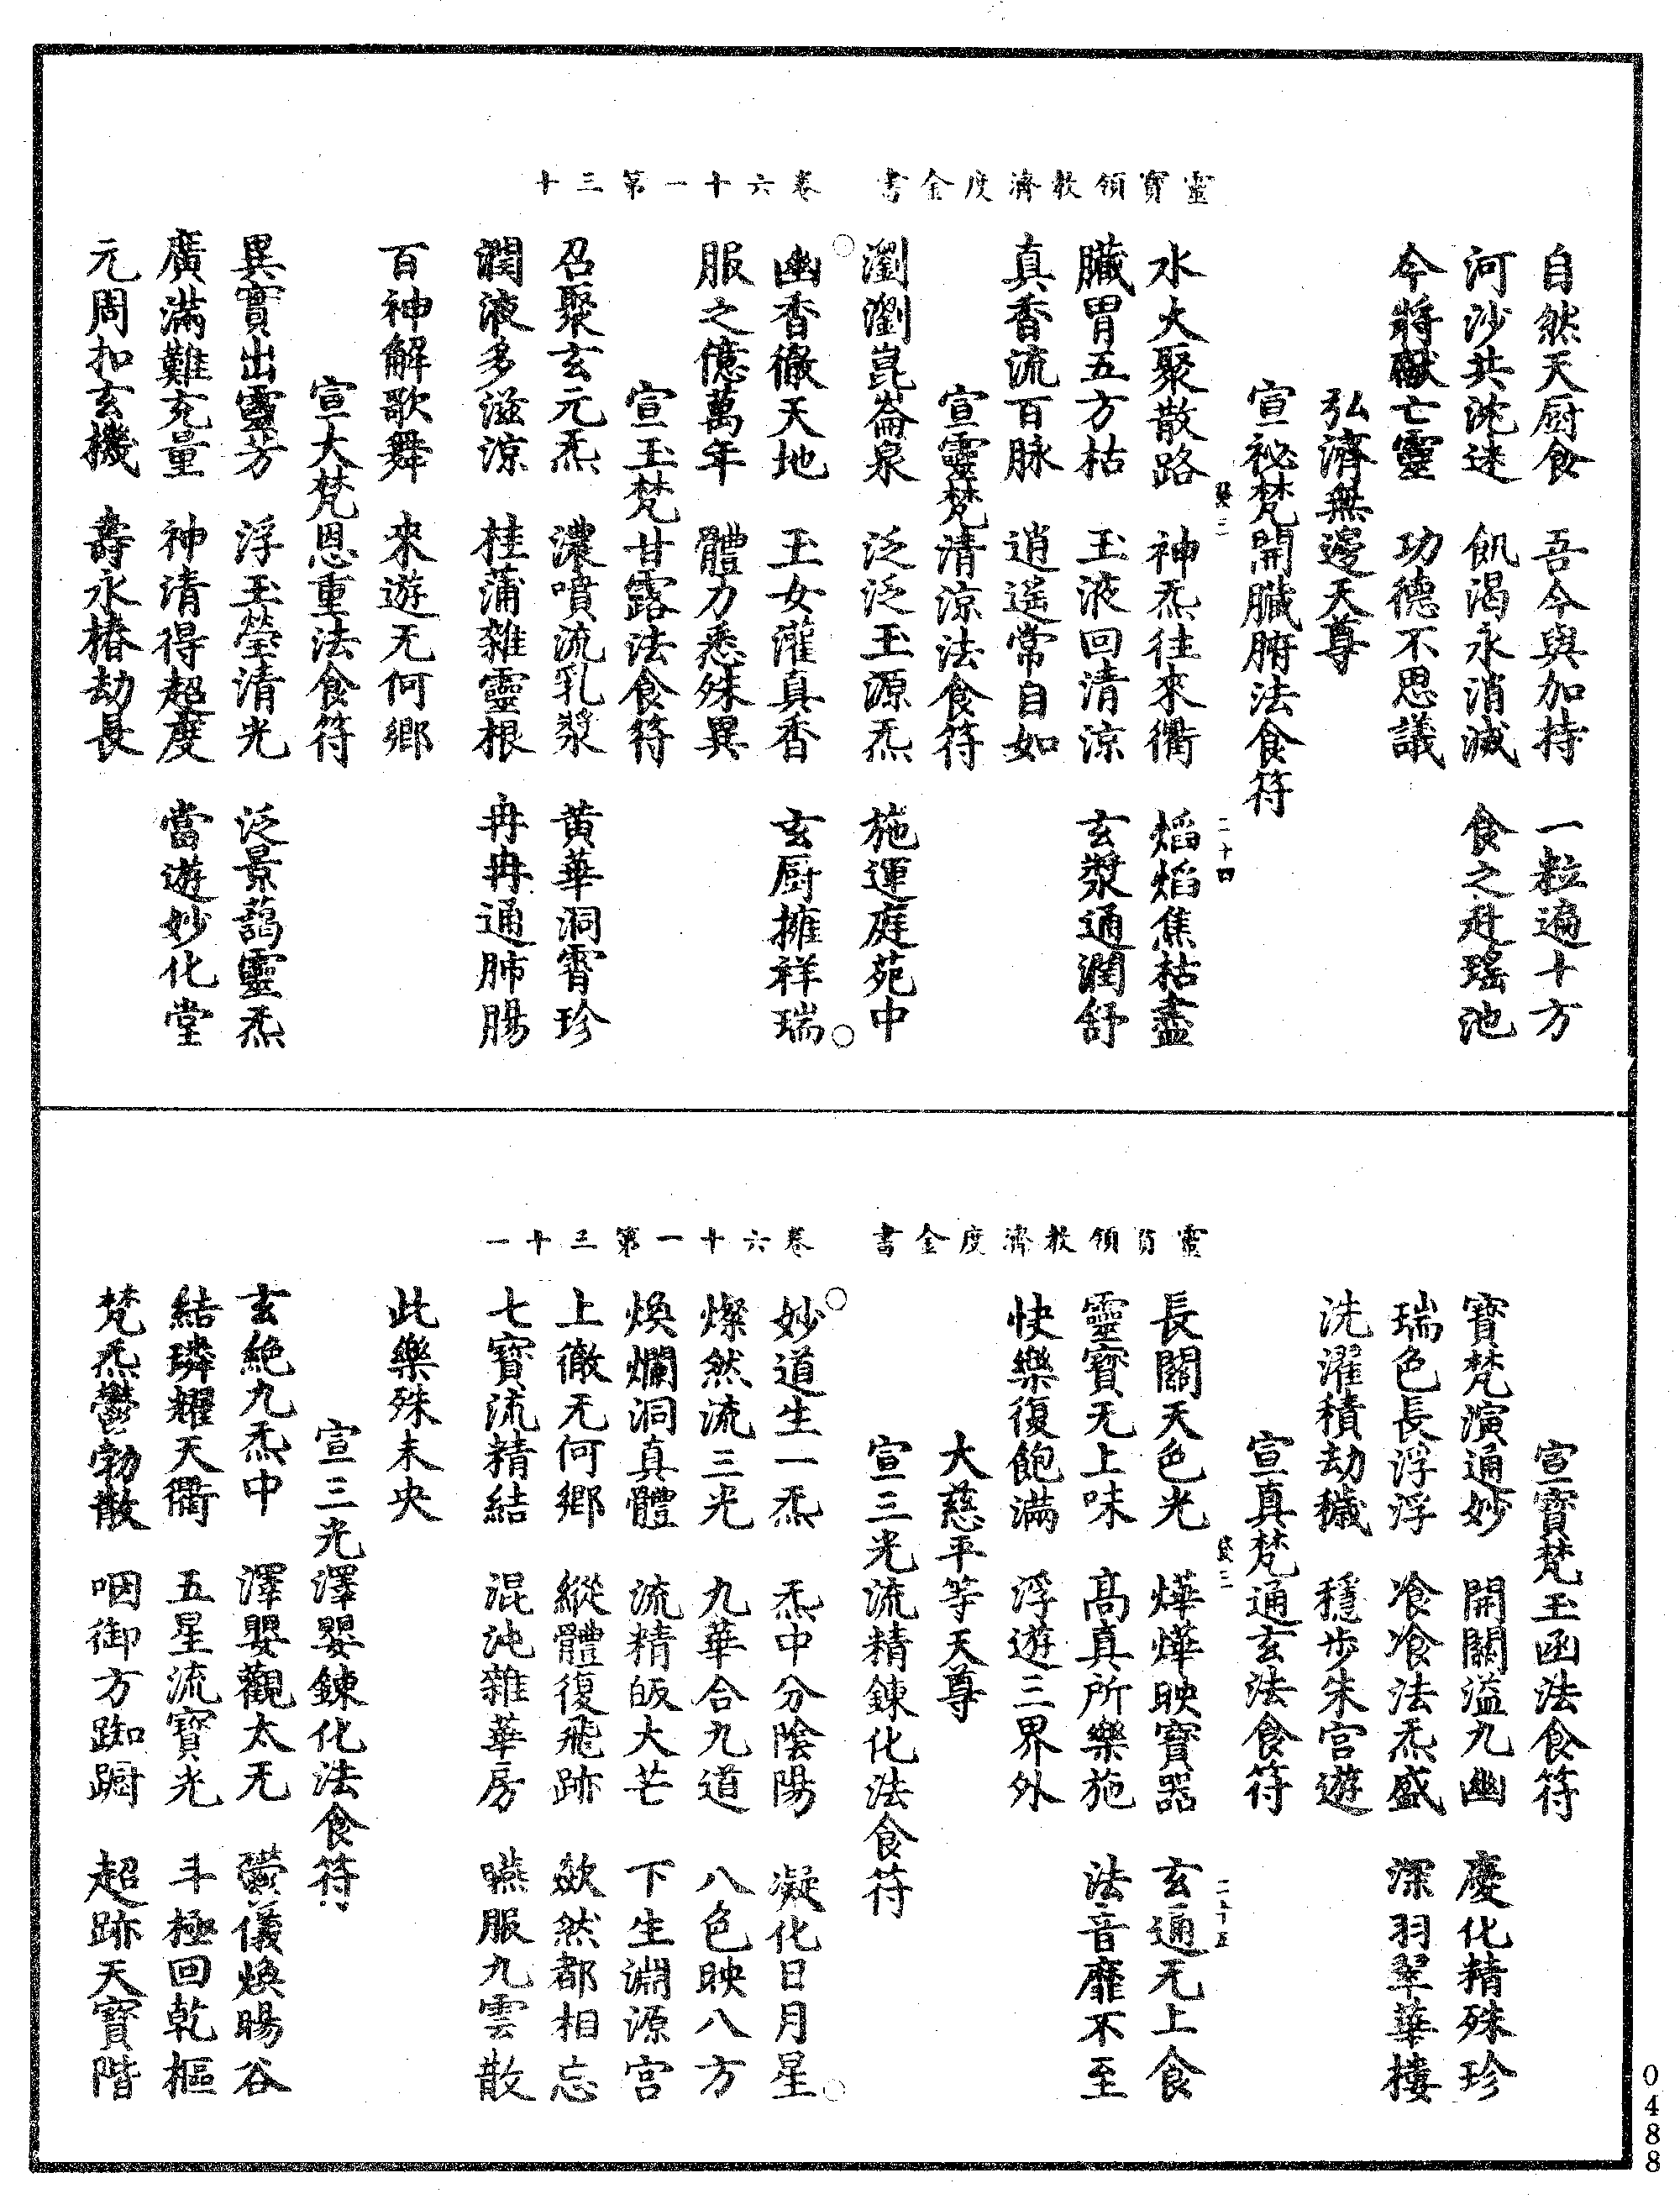 靈寶領教濟度金書 卷六十一第三十
自然天厨食 吾今與加持 一粒遍十方
河沙共沈迷 飢渴永消滅 食之升瑤池
今將獻亡靈 功德不思議
弘濟無邊天尊
宣祕梵開臟腑法食符
癸三 二十四
水火聚散路 神炁往來衢 焰焰焦枯盡
臟胃五方枯 玉液回清涼 玄漿通潤舒
真香流百脉 逍遥常自如
宣靈梵清涼法食符
瀏瀏崑崙泉 泛泛玉源炁 施運庭苑中
幽香徹天地 玉女灌真香 玄厨擁祥瑞
服之億萬年 體力悉殊異
宣玉梵甘露法食符
召聚玄元炁 濃噴流乳漿 黄華洞霄珍
潤液多滋涼 桂蒲雜靈根 冉冉通肺腸
百神解歌舞 來遊无何鄉
宣大梵恩重法食符
異寳出靈芳 浮玉瑩清光 泛景藹靈炁
廣滿難充量 神清得超度 當遊妙化堂
元周扣玄機 壽永椿劫長
靈寶領教濟度金書 卷六十一第三十一
宣寳梵玉函法食符
寳梵演通妙 開關溢九幽 慶化精殊珍
瑞色長浮浮 飡飡法炁盛 深羽翠華樓
洗濯積劫穢 穩步朱宫遊
宣真梵通玄法食符
癸三 二十五
長闊天色光 燁燁映寳器 玄通无上食
靈寳无上味 高真所樂施 法音靡不至
快樂復飽滿 浮遊三界外
大慈平等天尊
宣三光流精鍊化法食符
妙道生一炁 炁中分陰陽 凝化日月星
燦然流三光 九華合九道 八色映八方
煥爛洞真體 流精皈大芒 下生淵源宫
上徹无何鄉 縱體復飛跡 歘然都相忘
七寳流精結 混沌雜華房 嚥服九雲散
此樂殊未央
宣三光澤嬰鍊化法食符
玄絶九炁中 澤嬰觀太无 欝儀煥暘谷
結璘耀天衢 五星流寳光 斗極回乾樞
梵炁欝勃散 咽御方踟蹰 超跡天寳階
0488